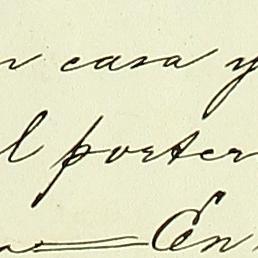 n casa y
l porter
En